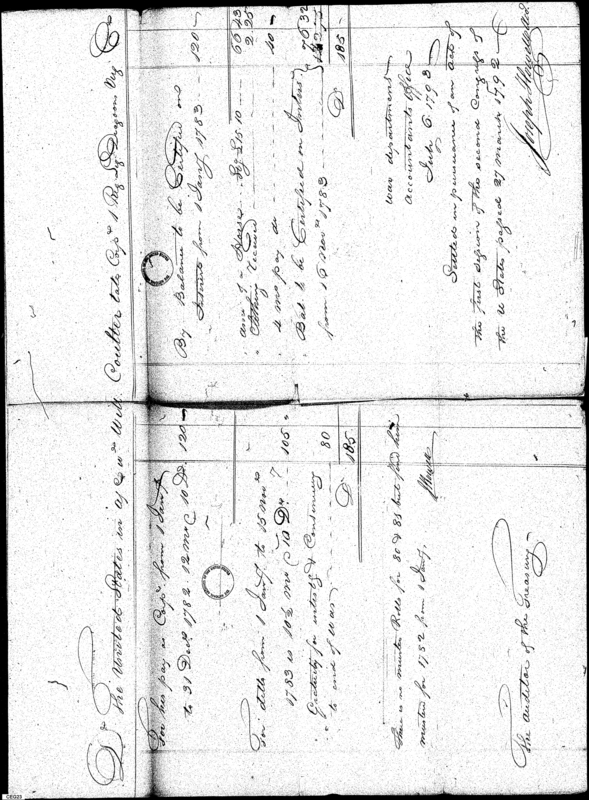 Dr The United States in a/c wh Willm Coulter late Capn 1 Reg Lt Dragoons Virg Cr
For his pay as Capn from 1 Jany
to 31 Decr 1782 12 mos @ 10 Ds. 120 —
To ditto from 1 Jany to 15 Novr
1783 is 10½ mos @ 10 Drs 105 "
Gratuity for & Continuing
to end of War 80
Ds 185.
There is no muster Rolls for 80 & 81 but find him
mustered for 1782 from 1 Jany.
The Auditor of the Treasury
By Balance to be Certified on
Interest from 1 Jany 1783 120 —
Horse 15.10 66 43
Clothing received 2 25
4 mo pay do 40 —
Bal to be Certified on Interest
from 16 Novr 1783 76 32
Ds 185 —
War department
Accountants office
July 6 1793
Settled in pursuance of an act of
the first session of the second Congress of
the U States passed 27 March 1792
Joseph Howell
CEG33